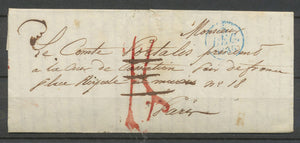 Monsieur
Le Comte Portales président
à la Cour de Cassation Pair de france
place Royale au marais n° 18
Paris